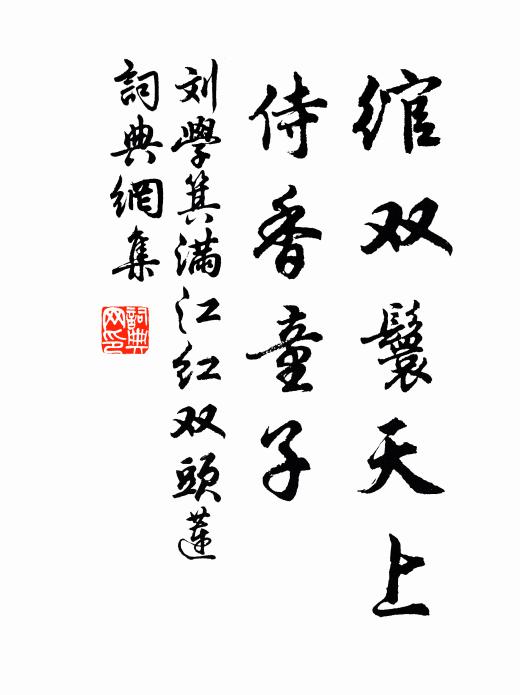 绾双鬟天上
侍香童子
刘學箕满江红双頭蓮
詞典網集
詞典网印